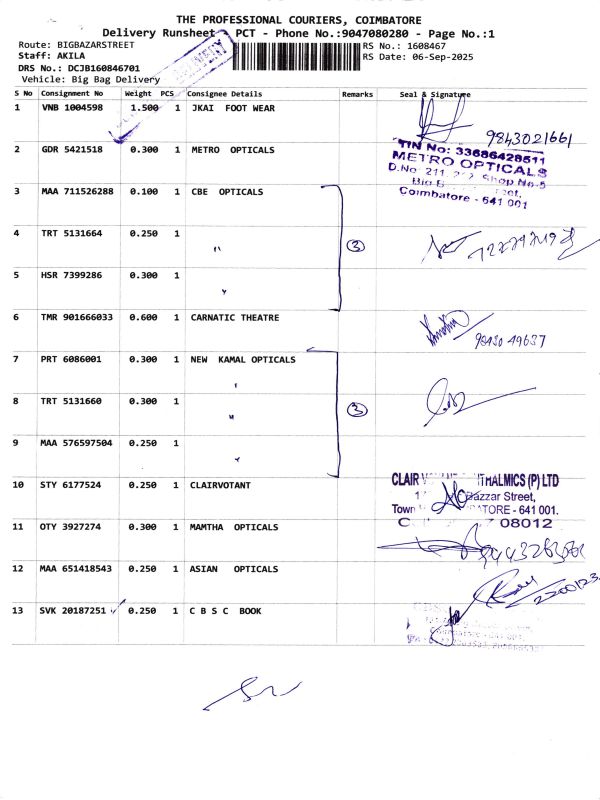 THE PROFESSIONAL COURIERS, COIMBATORE
Delivery Runsheet - PCT - Phone No.:9047080280 - Page No.:1
Route: BIGBAZARSTREET
RS No.: 1608467
Staff: AKILA
RS Date: 06-Sep-2025
DRS No.: DCJB160846701
Vehicle: Big Bag Delivery
S No Consignment No Weight PCS Consignee Details Remarks Seal & Signature
1 VNB 1004598 1.500 1 JKAI FOOT WEAR
9843021661
2 GDR 5421518 0.300 1 METRO OPTICALS
TIN No: 33686428511
METRO OPTICALS
D.No: 211, Shop No-5
Coimbatore - 641 001
3 MAA 711526288 0.100 1 CBE OPTICALS
4 TRT 5131664 0.250 1 "
3
5 HSR 7399286 0.300 1 "
6 TMR 901666033 0.600 1 CARNATIC THEATRE
98430 49637
7 PRT 6086001 0.300 1 NEW KAMAL OPTICALS
8 TRT 5131660 0.300 1 "
3
9 MAA 576597504 0.250 1 "
10 STY 6177524 0.250 1 CLAIRVOTANT
CLAIR THALMICS (P) LTD
Bazzar Street,
Town ATORE - 641 001.
08012
11 OTY 3927274 0.300 1 MAMTHA OPTICALS
12 MAA 651418543 0.250 1 ASIAN OPTICALS
2200123
13 SVK 20187251 0.250 1 C B S C BOOK